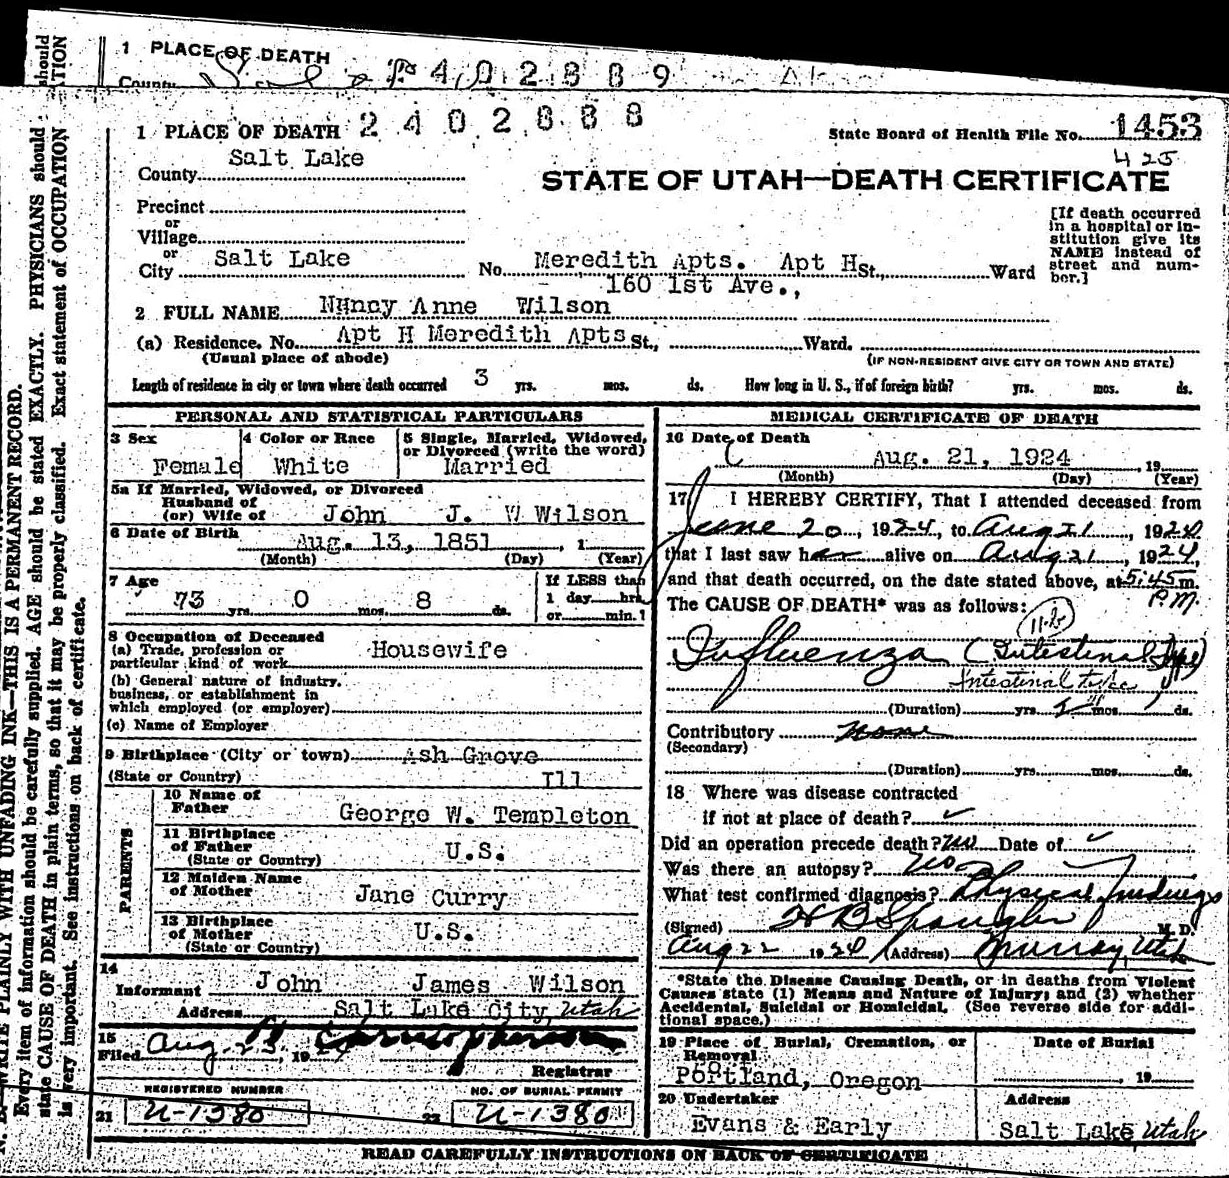 1 PLACE OF DEATH
County
2402889
should
TION
1 PLACE OF DEATH 2402888
State Board of Health File No. 1453
425
County Salt Lake
STATE OF UTAH—DEATH CERTIFICATE
Precinct
or
Village
or
City Salt Lake No. Meredith Apts. Apt H St., Ward
160 1st Ave.,
[If death occurred in a hospital or institution give its NAME instead of street and number.]
2 FULL NAME Nancy Anne Wilson
(a) Residence. No. Apt H Meredith Apts St., Ward.
(Usual place of abode) (IF NON-RESIDENT GIVE CITY OR TOWN AND STATE)
Length of residence in city or town where death occurred 3 yrs. mos. ds. How long in U. S., if of foreign birth? yrs. mos. ds.
PERSONAL AND STATISTICAL PARTICULARS
3 Sex
Female
4 Color or Race
White
5 Single, Married, Widowed, or Divorced (write the word)
Married
5a If Married, Widowed, or Divorced
Husband of
(or) Wife of John J. W Wilson
6 Date of Birth
Aug. 13, 1851, 1
(Month) (Day) (Year)
7 Age
73 yrs. 0 mos. 8 ds.
If LESS than
1 day hrs.
or min.?
8 Occupation of Deceased
(a) Trade, profession or
particular kind of work Housewife
(b) General nature of industry,
business, or establishment in
which employed (or employer)
(c) Name of Employer
9 Birthplace (City or town) Ash Grove
(State or Country) Ill
PARENTS
10 Name of
Father George W. Templeton
11 Birthplace
of Father U.S.
(State or Country)
12 Maiden Name
of Mother Jane Curry
13 Birthplace
of Mother U.S.
(State or Country)
14
Informant John James Wilson
Address Salt Lake City, Utah
15
Filed Aug. 23, 1924
Registrar
REGISTERED NUMBER
21 U-1380
NO. OF BURIAL PERMIT
22 U-1380
MEDICAL CERTIFICATE OF DEATH
16 Date of Death
Aug. 21, 1924, 19
(Month) (Day) (Year)
17 I HEREBY CERTIFY, That I attended deceased from
June 20, 1924, to Aug 21, 1924
that I last saw her alive on Aug 21, 1924,
and that death occurred, on the date stated above, at 5:45 m.
P.M.
The CAUSE OF DEATH* was as follows:
11-b
Influenza (Intestinal Type)
Intestinal Type
(Duration) yrs. 2 mos. ds.
Contributory None
(Secondary)
(Duration) yrs. mos. ds.
18 Where was disease contracted
if not at place of death? ✓
Did an operation precede death? No Date of ✓
Was there an autopsy? No
What test confirmed diagnosis? Physical findings
(Signed) H B Spangler M. D.
Aug 22 1924 (Address) Murray, Utah
*State the Disease Causing Death, or in deaths from Violent
Causes state (1) Means and Nature of Injury; and (2) whether
Accidental, Suicidal or Homicidal. (See reverse side for addi-
tional space.)
19 Place of Burial, Cremation, or
Removal
Portland, Oregon
Date of Burial
, 19
20 Undertaker
Evans & Early
Address
Salt Lake Utah
READ CAREFULLY INSTRUCTIONS ON BACK OF CERTIFICATE
WRITE PLAINLY WITH UNFADING INK—THIS IS A PERMANENT RECORD.
Every item of information should be carefully supplied. AGE should be stated EXACTLY. PHYSICIANS should
state CAUSE OF DEATH in plain terms, so that it may be properly classified. Exact statement of OCCUPATION
is very important. See instructions on back of certificate.